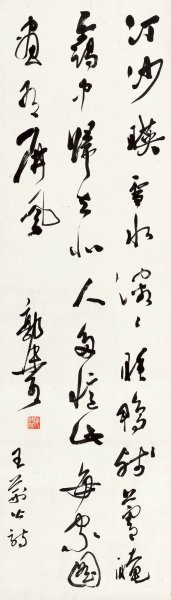 汀沙暎雪水溶々睡鴨殘蘆晻
靄中歸去北人多憶此每家圖
畫有屏風
郭
王荊公詩